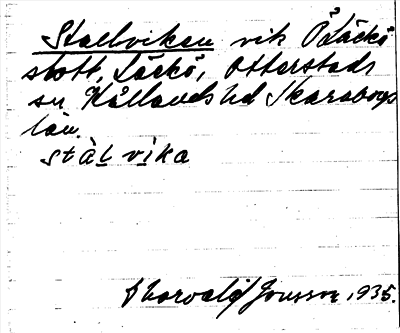 Stallviken vik Ö Läckö
slott, Läckö, Otterstads
sn Kållands hd Skaraborgs
län.
stàl vika
Thorvald Jonsson, 1935.